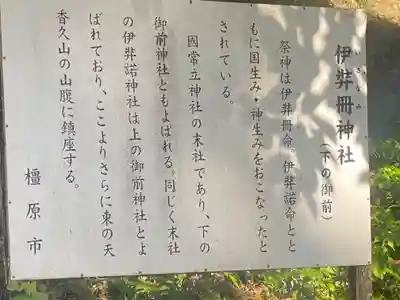 伊弉冊神社
いざなみ
（下の御前）
祭神は伊弉冊命。伊弉諾命とと
もに国生み・神生みをおこなったと
されている。
國常立神社の末社であり、下の
御前神社ともよばれる。同じく末社
の伊弉諾神社は上の御前神社とよ
ばれており、ここよりさらに東の天
香久山の山腹に鎮座する。
橿原市